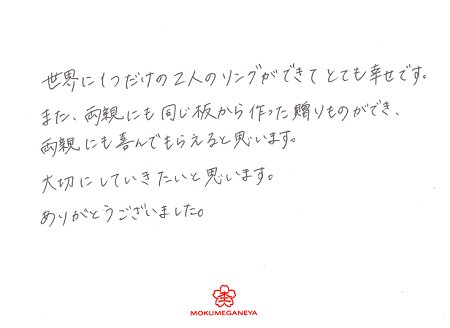 世界に1つだけの2人のリングができてとても幸せです。
また、両親にも同じ板から作った贈りものができ、
両親にも喜んでもらえると思います。
大切にしていきたいと思います。
ありがとうございました。
MOKUMEGANEYA